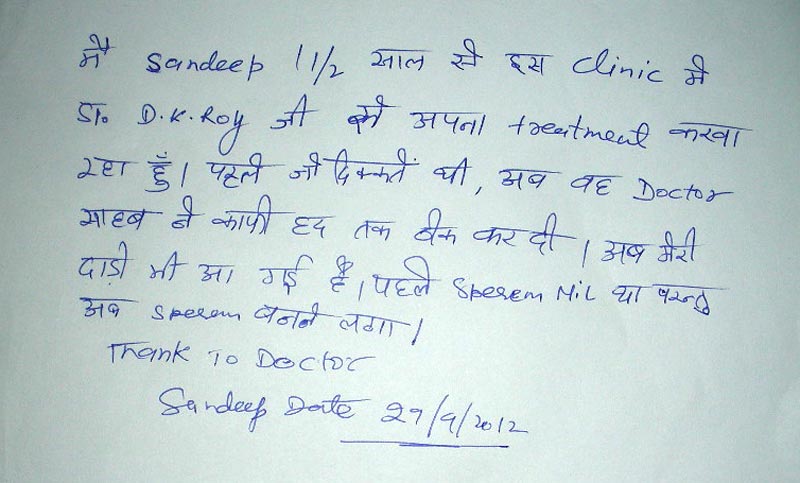 मैं Sandeep 1 1/2 साल से इस Clinic मे
डा० D.K.Roy जी से अपना treatment करवा
रहा हूँ। पहले जो दिक्कतें थी, अब वह Doctor
साहब ने काफी हद तक ठीक कर दी। अब मेरी
दाड़ी भी आ गई है। पहले Sperem Nil था परन्तु
अब sperem बनने लगा।
Thank To Doctor
Sandeep Date 29/9/2012